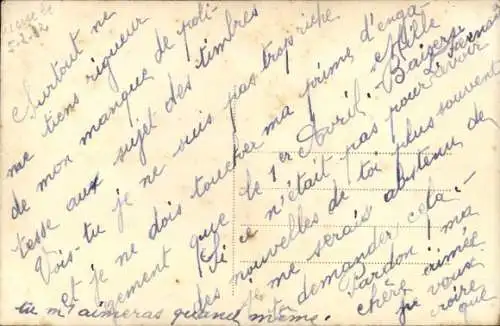 5-2-32
Surtout ne
me tiens rigueur
de mon manque de poli-
tesse aux sujet des timbres
Vois-tu je ne suis pas trop riche
et je ne dois toucher ma prime d'enga-
gement que le 1er Avril, Mlle
Si ce n'était pas pour avoir
des nouvelles de toi plus souvent
je me serais abstenu de
demander cela.
Pardon! ma
chère aimée
je veux
croire
que
tu m'aimeras quand même.